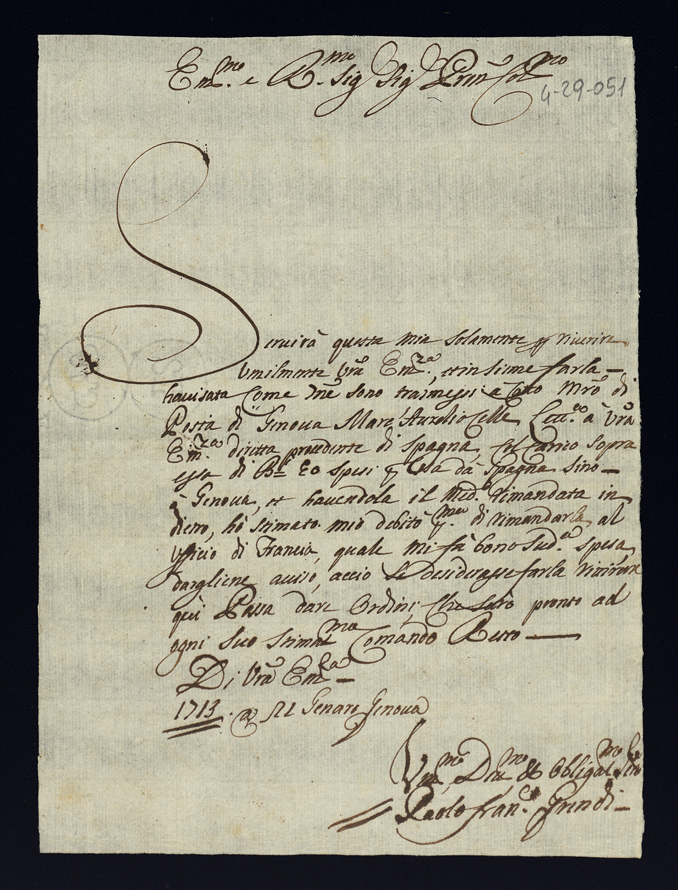 Em.mo e R.mo Sig Sig Prin Col.mo
4-29-051
Servirà questa mia solamente p riverire
Umilmente Vra Em.za, et insieme farla
havisata Come me sono trasmessi a Mro di
Posta di Genova Marc'Aurelio Celle a Vra
Em.za diretta procedente di Spagna, Col Carico sopra
essa di spesi p da Spagna sino
a Genova, et havendola il Med. rimandata in
diero, hò stimato mio debito p.ma di rimandarla al
Ufficio di Francia, quale mi fà bono Sud.a spesa,
dargliene aviso, acciò Se desiderasse farla venire
qui Possa dare Ordini, Che sarò pronto ad
ogni Suo Stimat.mo Comando Resto
Di Vra Em.za
1713 Genaro Genova
Um.mo Dev.mo & Obligat.mo
Paolo Fran.co Grendi